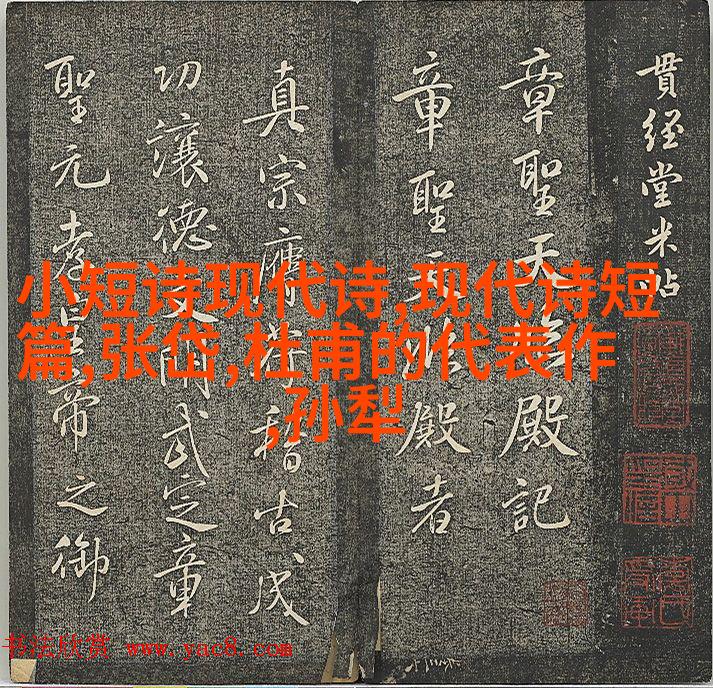 貫經堂米帖
章聖天殿記
章聖天殿者
真宗膺稽古成
功讓德文明武定章
聖元孝皇帝之御
小短诗现代诗,现代诗短
篇,张岱,杜甫的代表作
,孙犁
书法欣赏 www.yac8.com